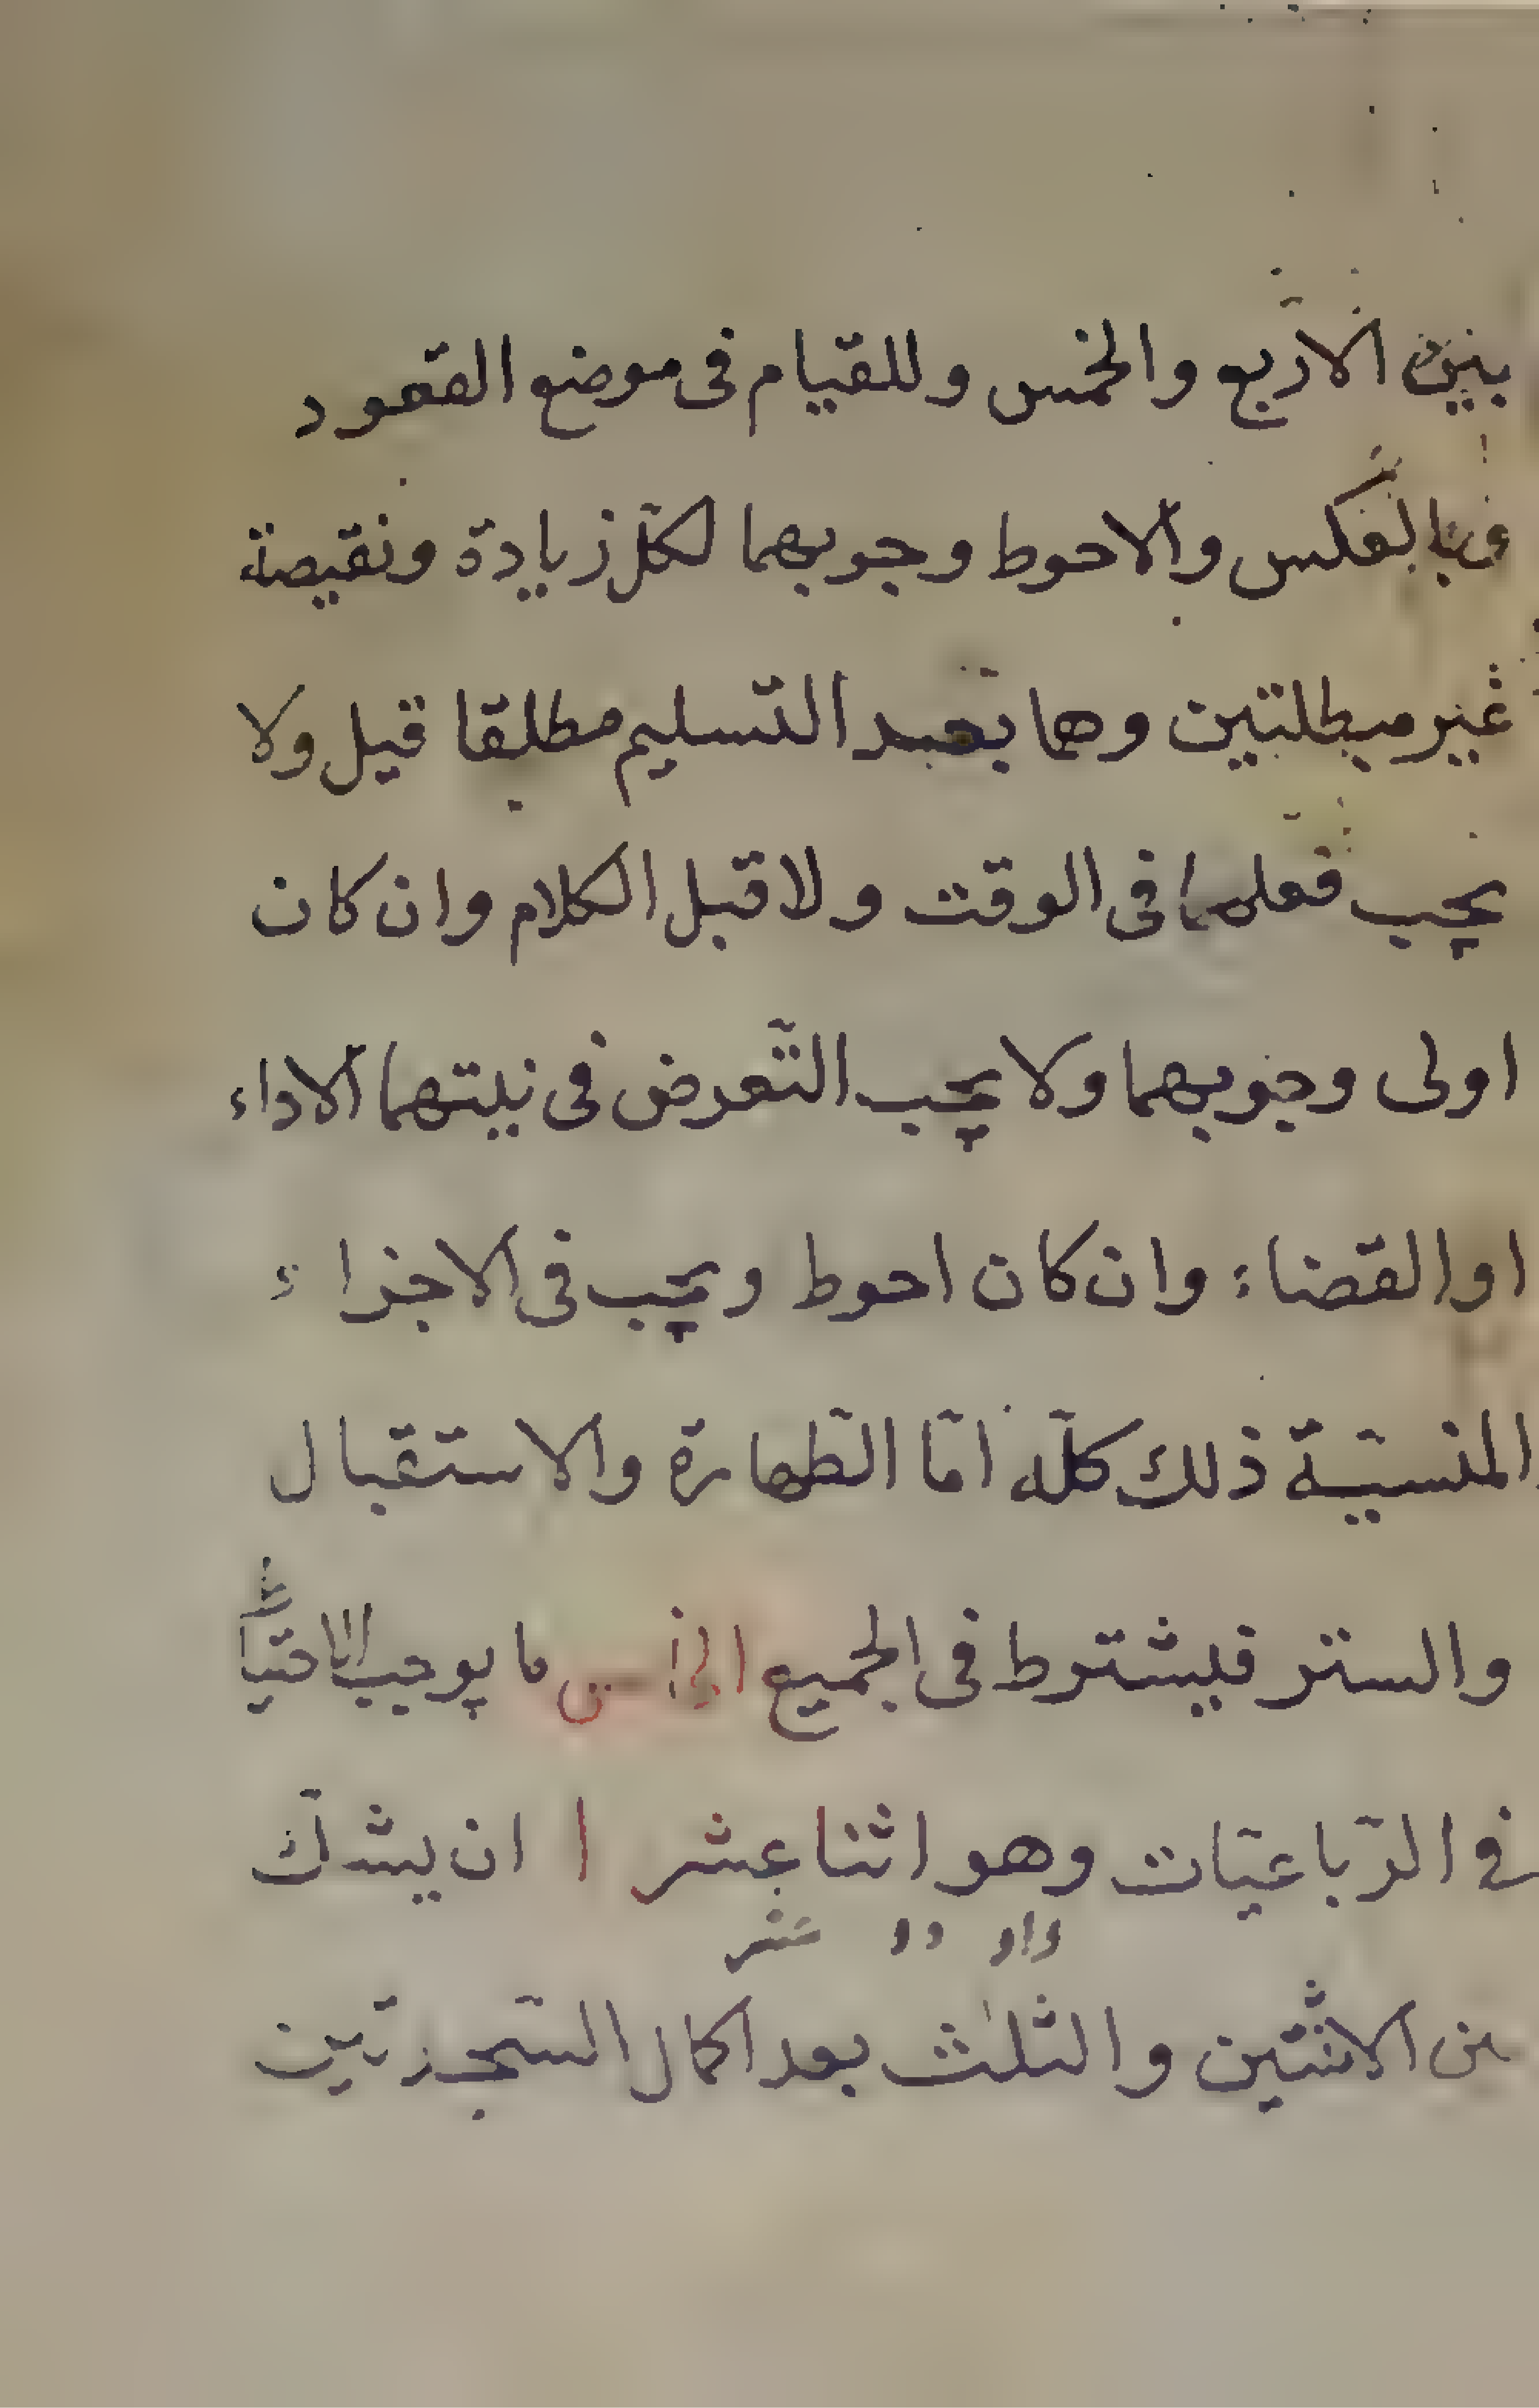 بين الاربع والخمس وللقيام فى موضع القعود
وبالعكس والاحوط وجوبهما لكلّ زيادة ونقيصة
غير مبطلتين وهما بعد التّسليم مطلقا قيل ولا
يجب فعلهما فى الوقت ولا قبل الكلام وان كان
اولى وجوبهما ولا يجب التّعرض فى نيتهما الاداء
او القضاء وان كان احوط ويجب فى الاجزاء
المنسيّة ذلك كلّه امّا الطّهارة والاستقبال
والستر فيشترط فى الجميع ما يوجب الاحتياط
فى الرّباعيّات وهو اثنا عشر ا ان يشكّ
بين الاثنتين والثّلٰث بعد اكمال السّجدتين